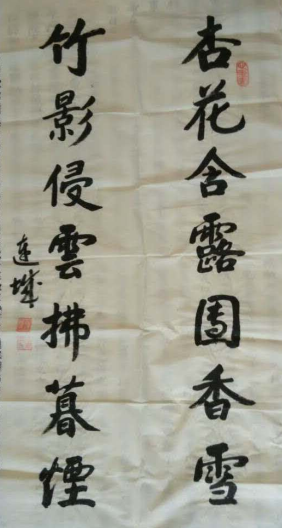 杏花含露團香雪
竹影侵雲拂暮煙
連城